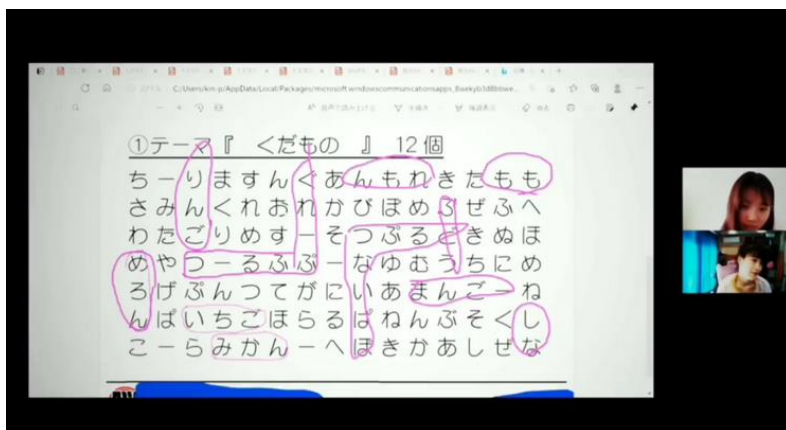 C:/Users/km-p/AppData/Local/Packages/microsoft.windowscommunicationsapps_8wekyb3d8bbwe...
音声で読み上げる
①テーマ『 くだもの 』 12個
ちーりますんぐあんもれきたもも
さみんくれおれかびぽめぶぜふへ
わたごりめすーそつぷるどきぬほ
めやつーるふぷーなゆむうちにめ
ろげぷんつてがにいあまんごーね
んぱいちごほらるぱねんぶそくし
こーらみかんーへぽきかあしぜな